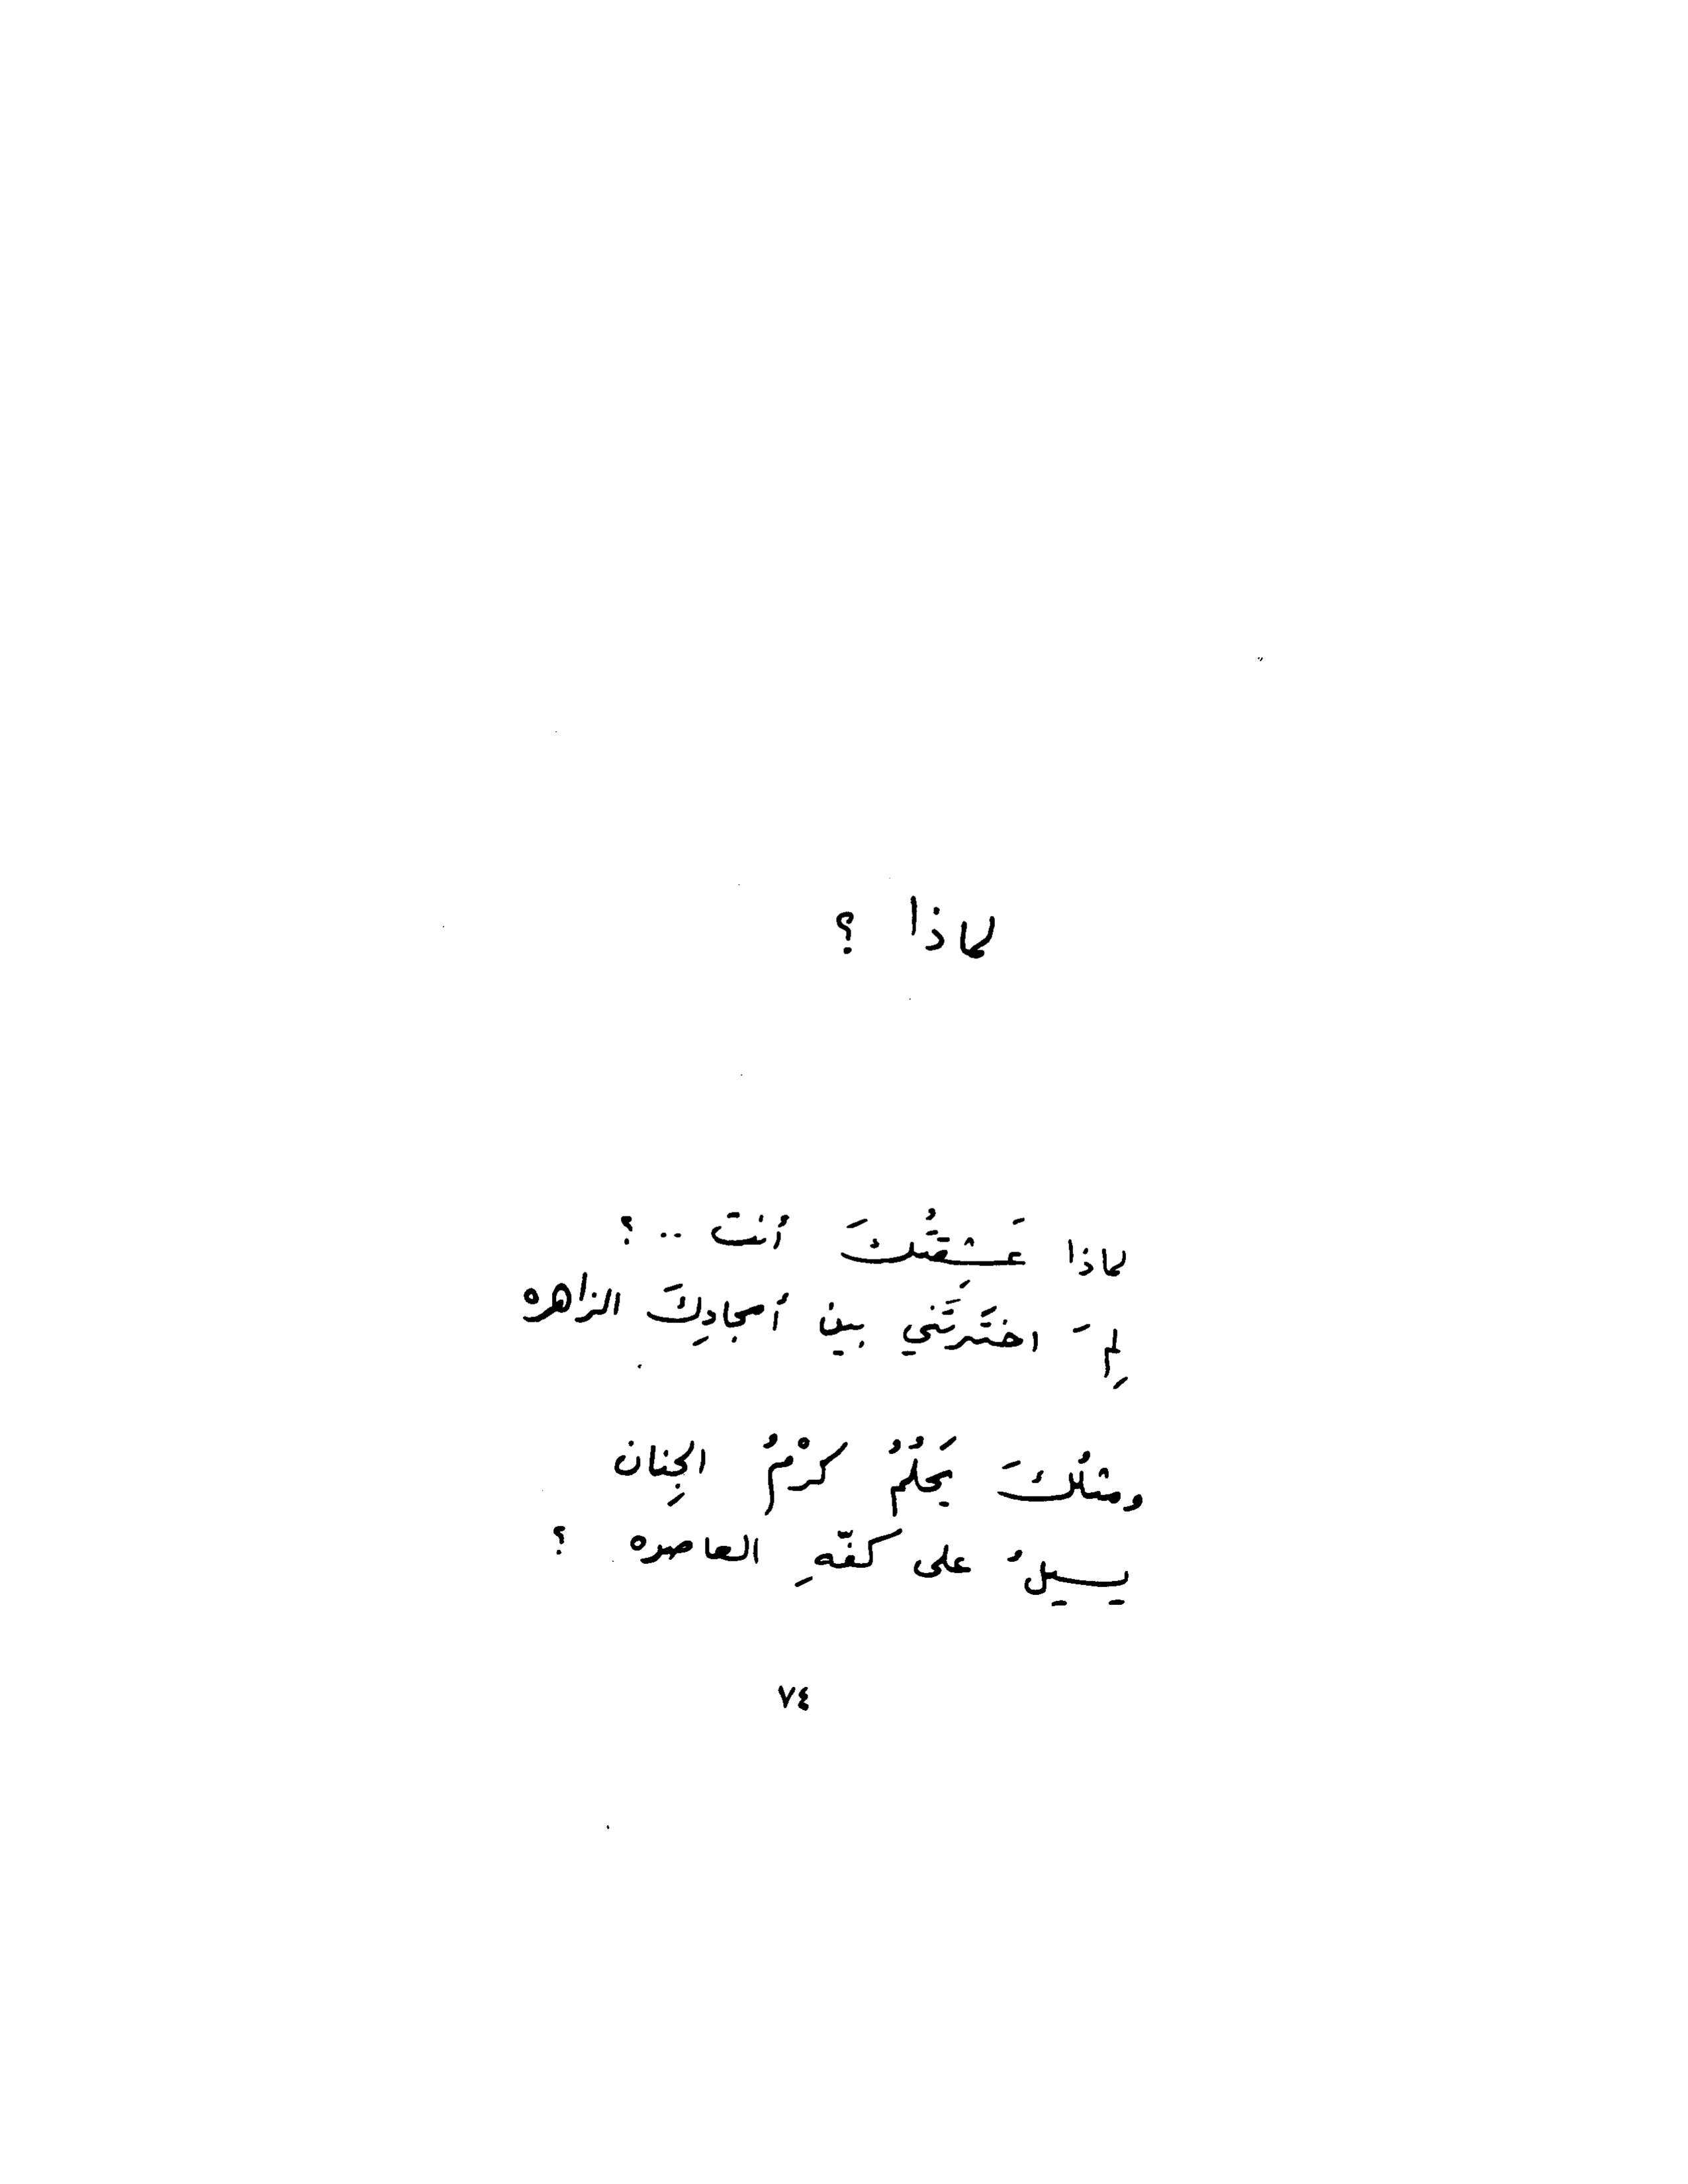 لماذا ؟
لماذا عَشقتُكَ أنت .. ؟
لِمَ اختَرتَني بين أمجادِكَ الزاهره
ومثلُكَ يَحلُمُ كرْمُ الجِنان
يسيلُ على كفّهِ العاصره ؟
٧٤